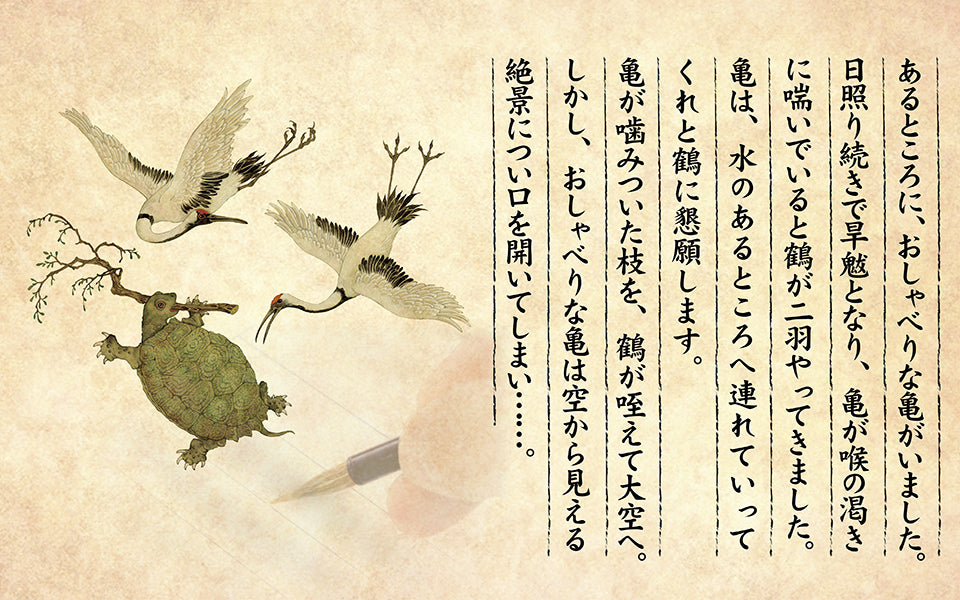 あるところに、おしゃべりな亀がいました。
日照り続きで旱魃となり、亀が喉の渇き
に喘いでいると鶴が二羽やってきました。
亀は、水のあるところへ連れていって
くれと鶴に懇願します。
亀が噛みついた枝を、鶴が咥えて大空へ。
しかし、おしゃべりな亀は空から見える
絶景につい口を開いてしまい……。